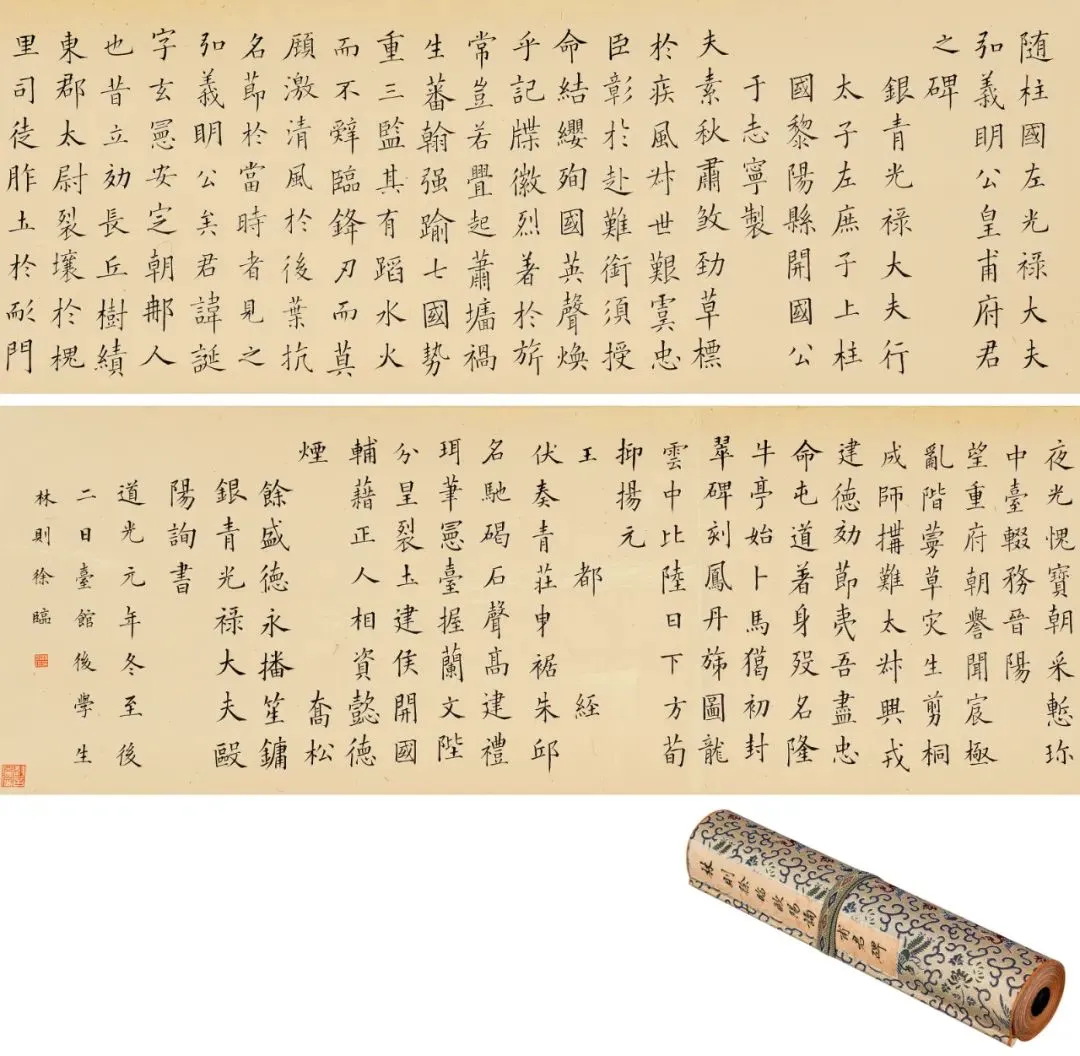 随柱國左光禄大夫
弘義明公皇甫府君
之碑
銀青光禄大夫行
太子左庶子上柱
國黎陽縣開國公
于志寧製
夫素秋肅煞勁草標
於疾風叔世艱虞忠
臣彰於赴難銜須授
命結纓殉國英聲煥
乎記牒徽烈著於旂
常豈若釁起蕭墻禍
生蕃翰强踰七國勢
重三監其有蹈水火
而不辭臨鋒刃而莫
顧激清風於後葉抗
名節於當時者見之
弘義明公矣君諱誕
字玄憲安定朝那人
也昔立効長丘樹績
東郡太尉裂壤於槐
里司徒胙土於耏門
夜光愧寶朝采慙珎
中臺輟務晉陽
望重府朝譽聞宸極
亂階蔓草灾生剪桐
成師搆難太叔興戎
建德効節夷吾盡忠
命屯道著身殁名隆
牛亭始卜馬獦初封
翠碑刻鳳丹旐圖龍
雲中比陸日下方荀
抑揚元
王都經
伏奏青莊申裾朱邸
名馳碣石聲高建禮
珥筆憲臺握蘭文陛
分星裂土建侯開國
輔藉正人相資懿德
煙喬松
餘盛德永播笙鏞
銀青光禄大夫歐
陽詢書
道光元年冬至後
二日臺館後學生
林則徐臨
林則徐臨歐陽詢甫君碑